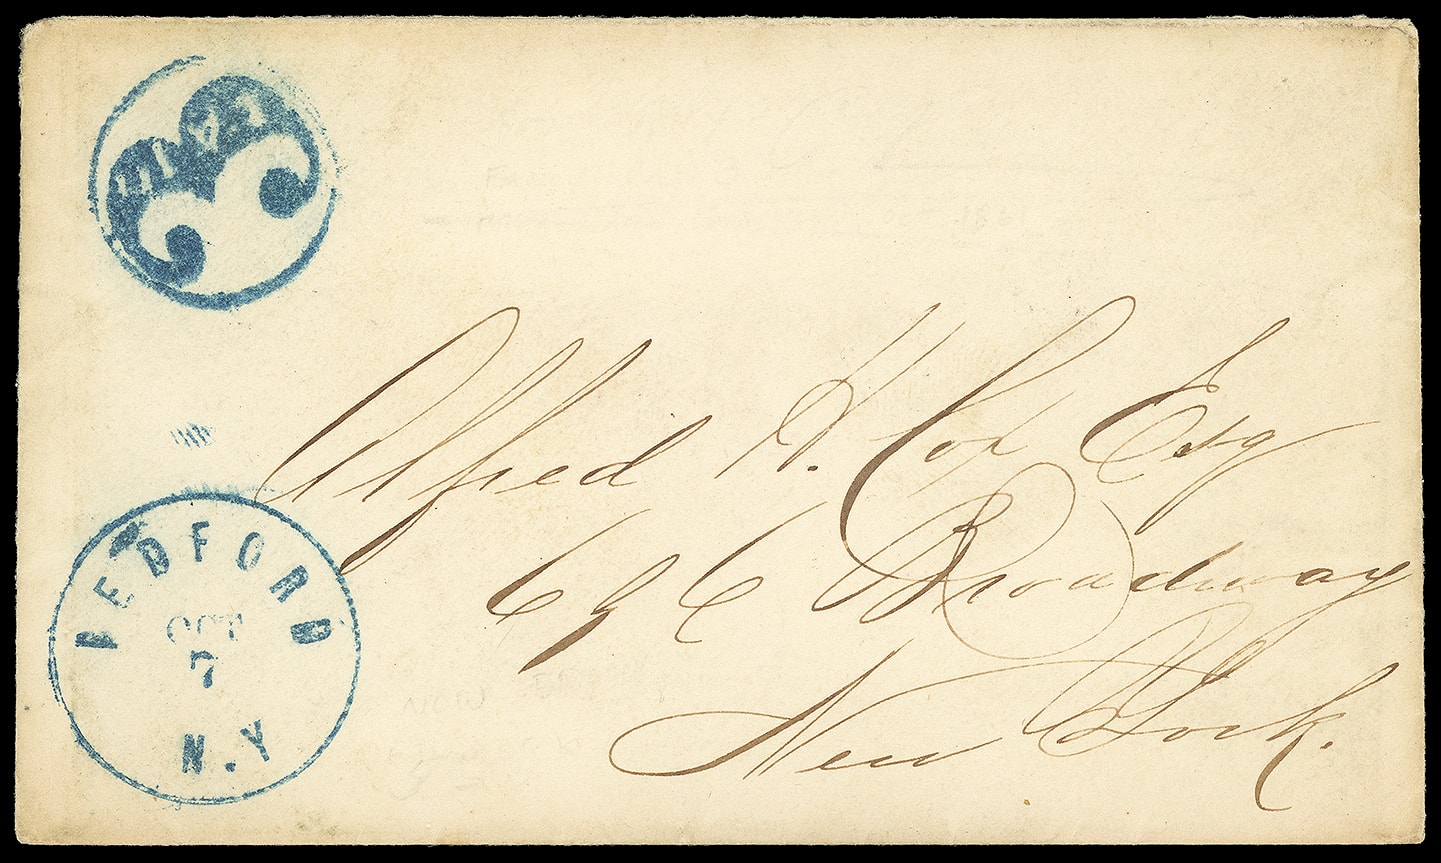 PAID
3
BEDFORD
OCT
7
N.Y
Alfred H. Cox Esq
696 Broadway
New York.